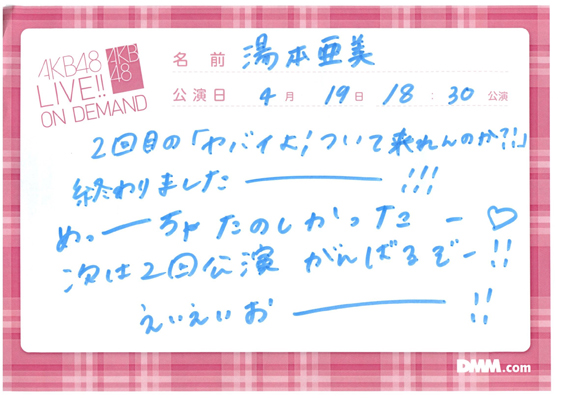 AKB48
LIVE!!
ON DEMAND
AKB
48
名 前 湯本亜美
公演日 4月 19日 18:30 公演
2回目の「ヤバイよ!ついて来れんのか?!」
終わりました ー !!!
めっーちゃたのしかったー♡
次は2回公演 がんばるぞー!!
えいえいおー!!
DMM.com